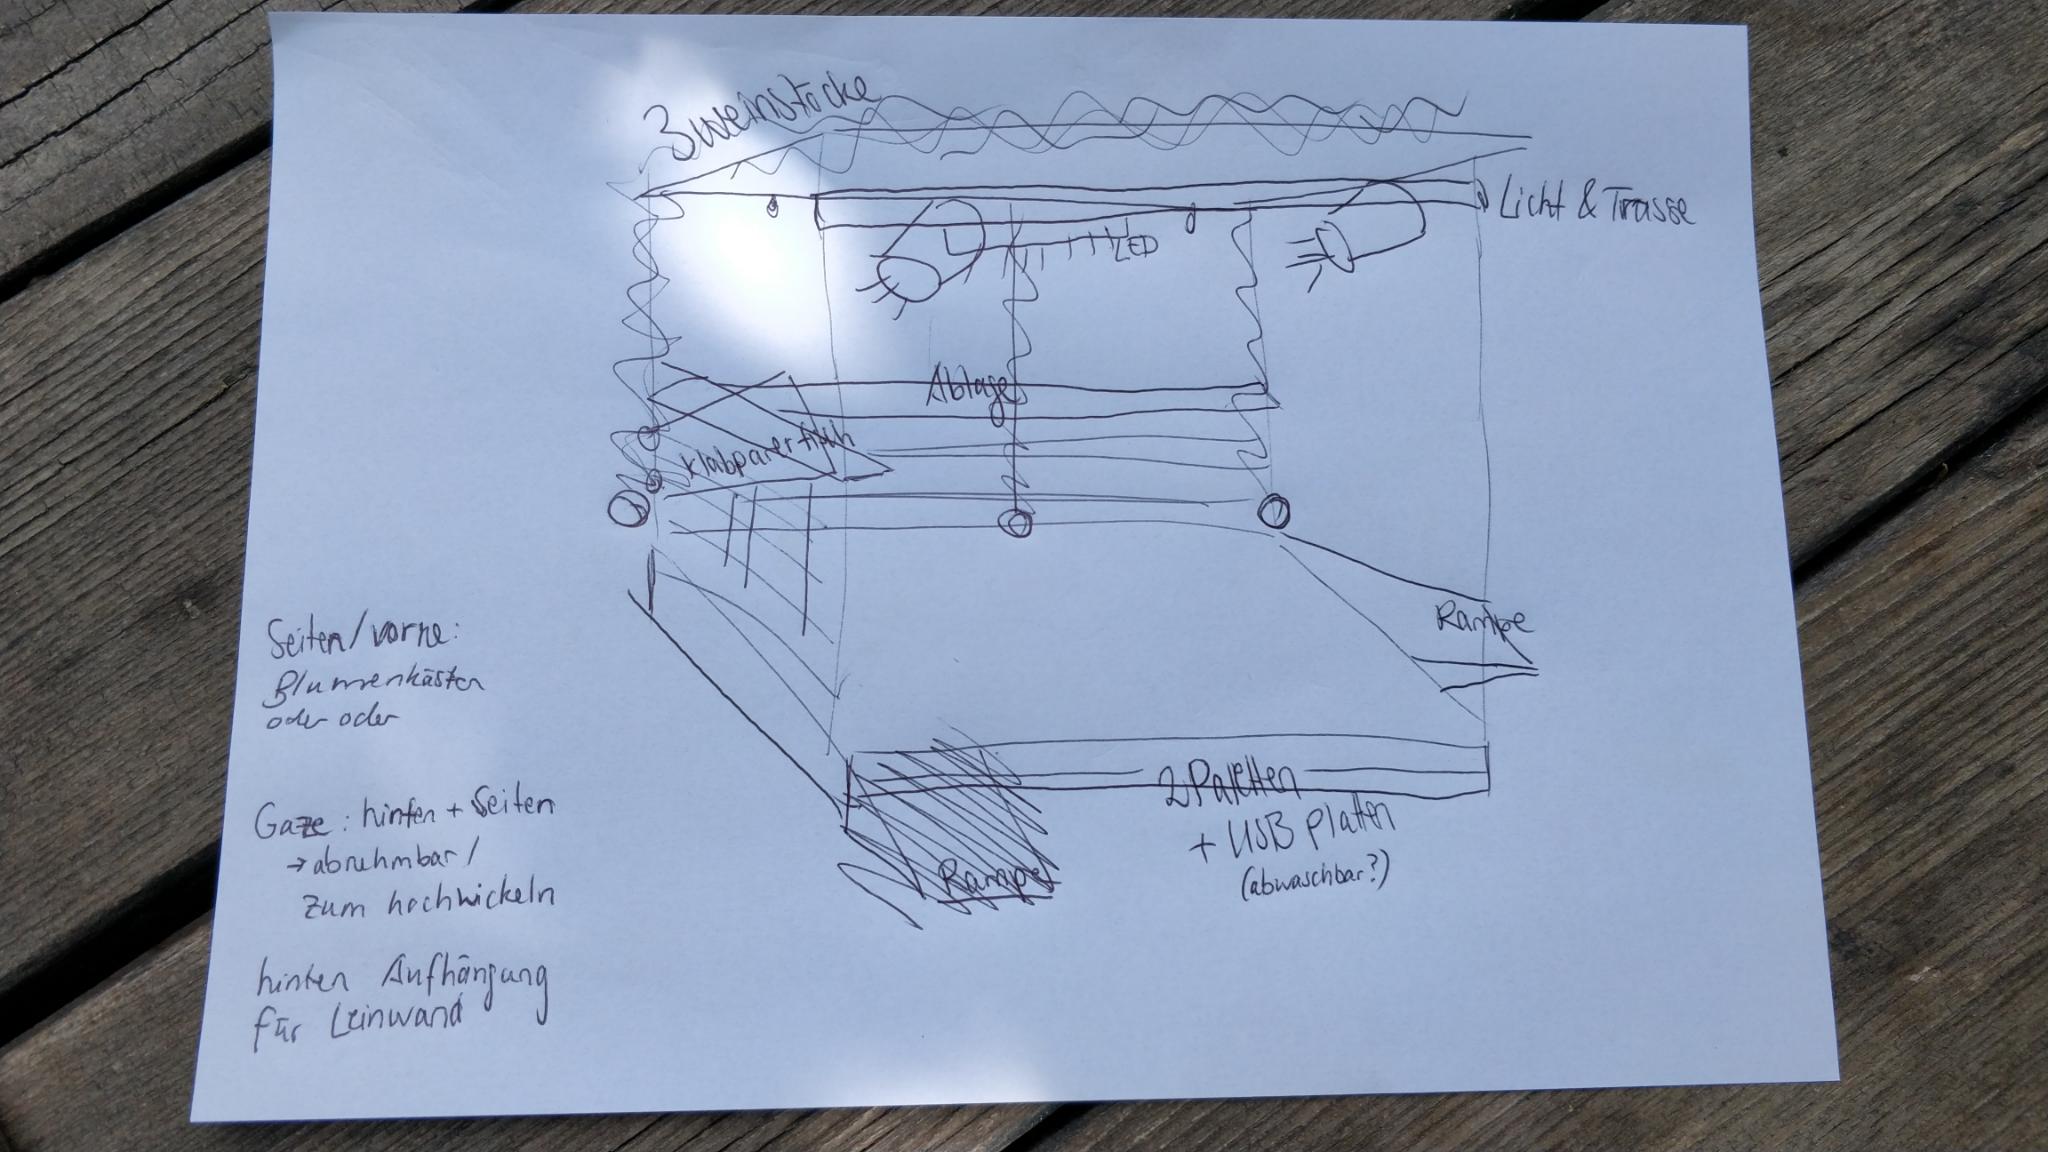 3 Weinstöcke
Licht & Trasse
LED
Ablage
Klabparer tisch
Rampe
2 Paletten
+ USB platten
(abwaschbar?)
Rampe
Seiten/vorne:
Blumenkästen
oder oder
Gaze: hinten + Seiten
→ abnehmbar/
zum hochwickeln
hinten Aufhängung
für Leinwand